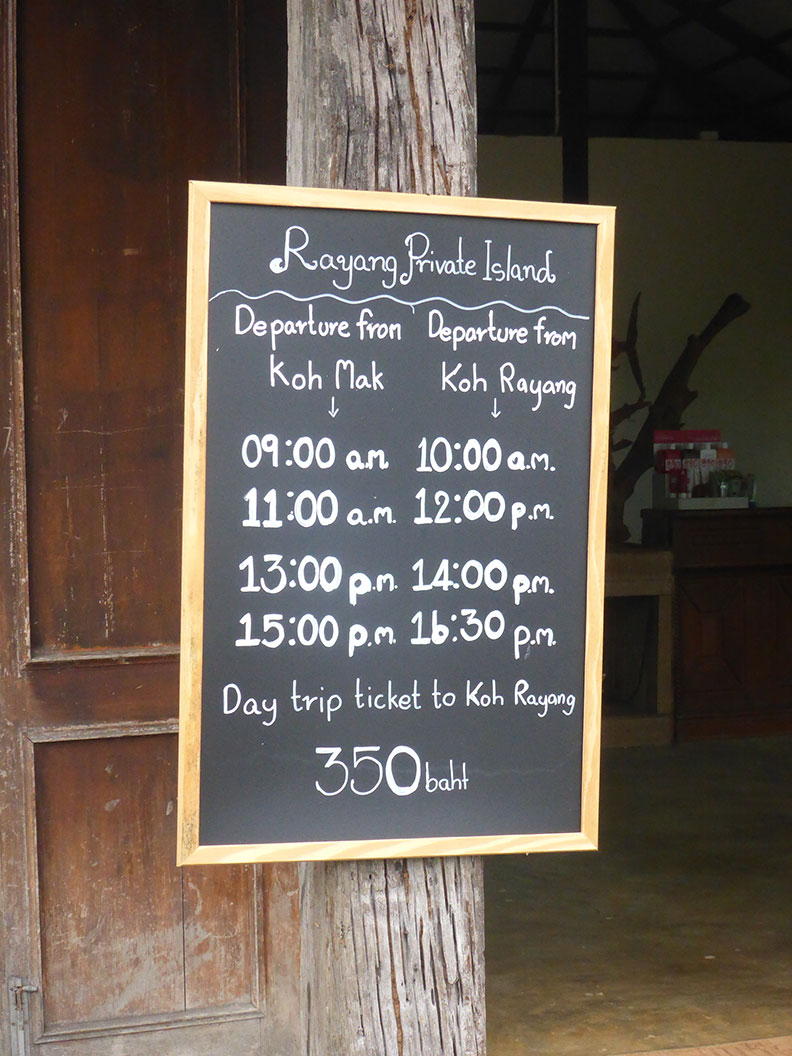 Rayang Private Island
Departure from Departure from
Koh Mak Koh Rayang
↓ ↓
09:00 a.m. 10:00 a.m.
11:00 a.m. 12:00 p.m.
13:00 p.m. 14:00 p.m.
15:00 p.m. 16:30 p.m.
Day trip ticket to Koh Rayang
350 baht